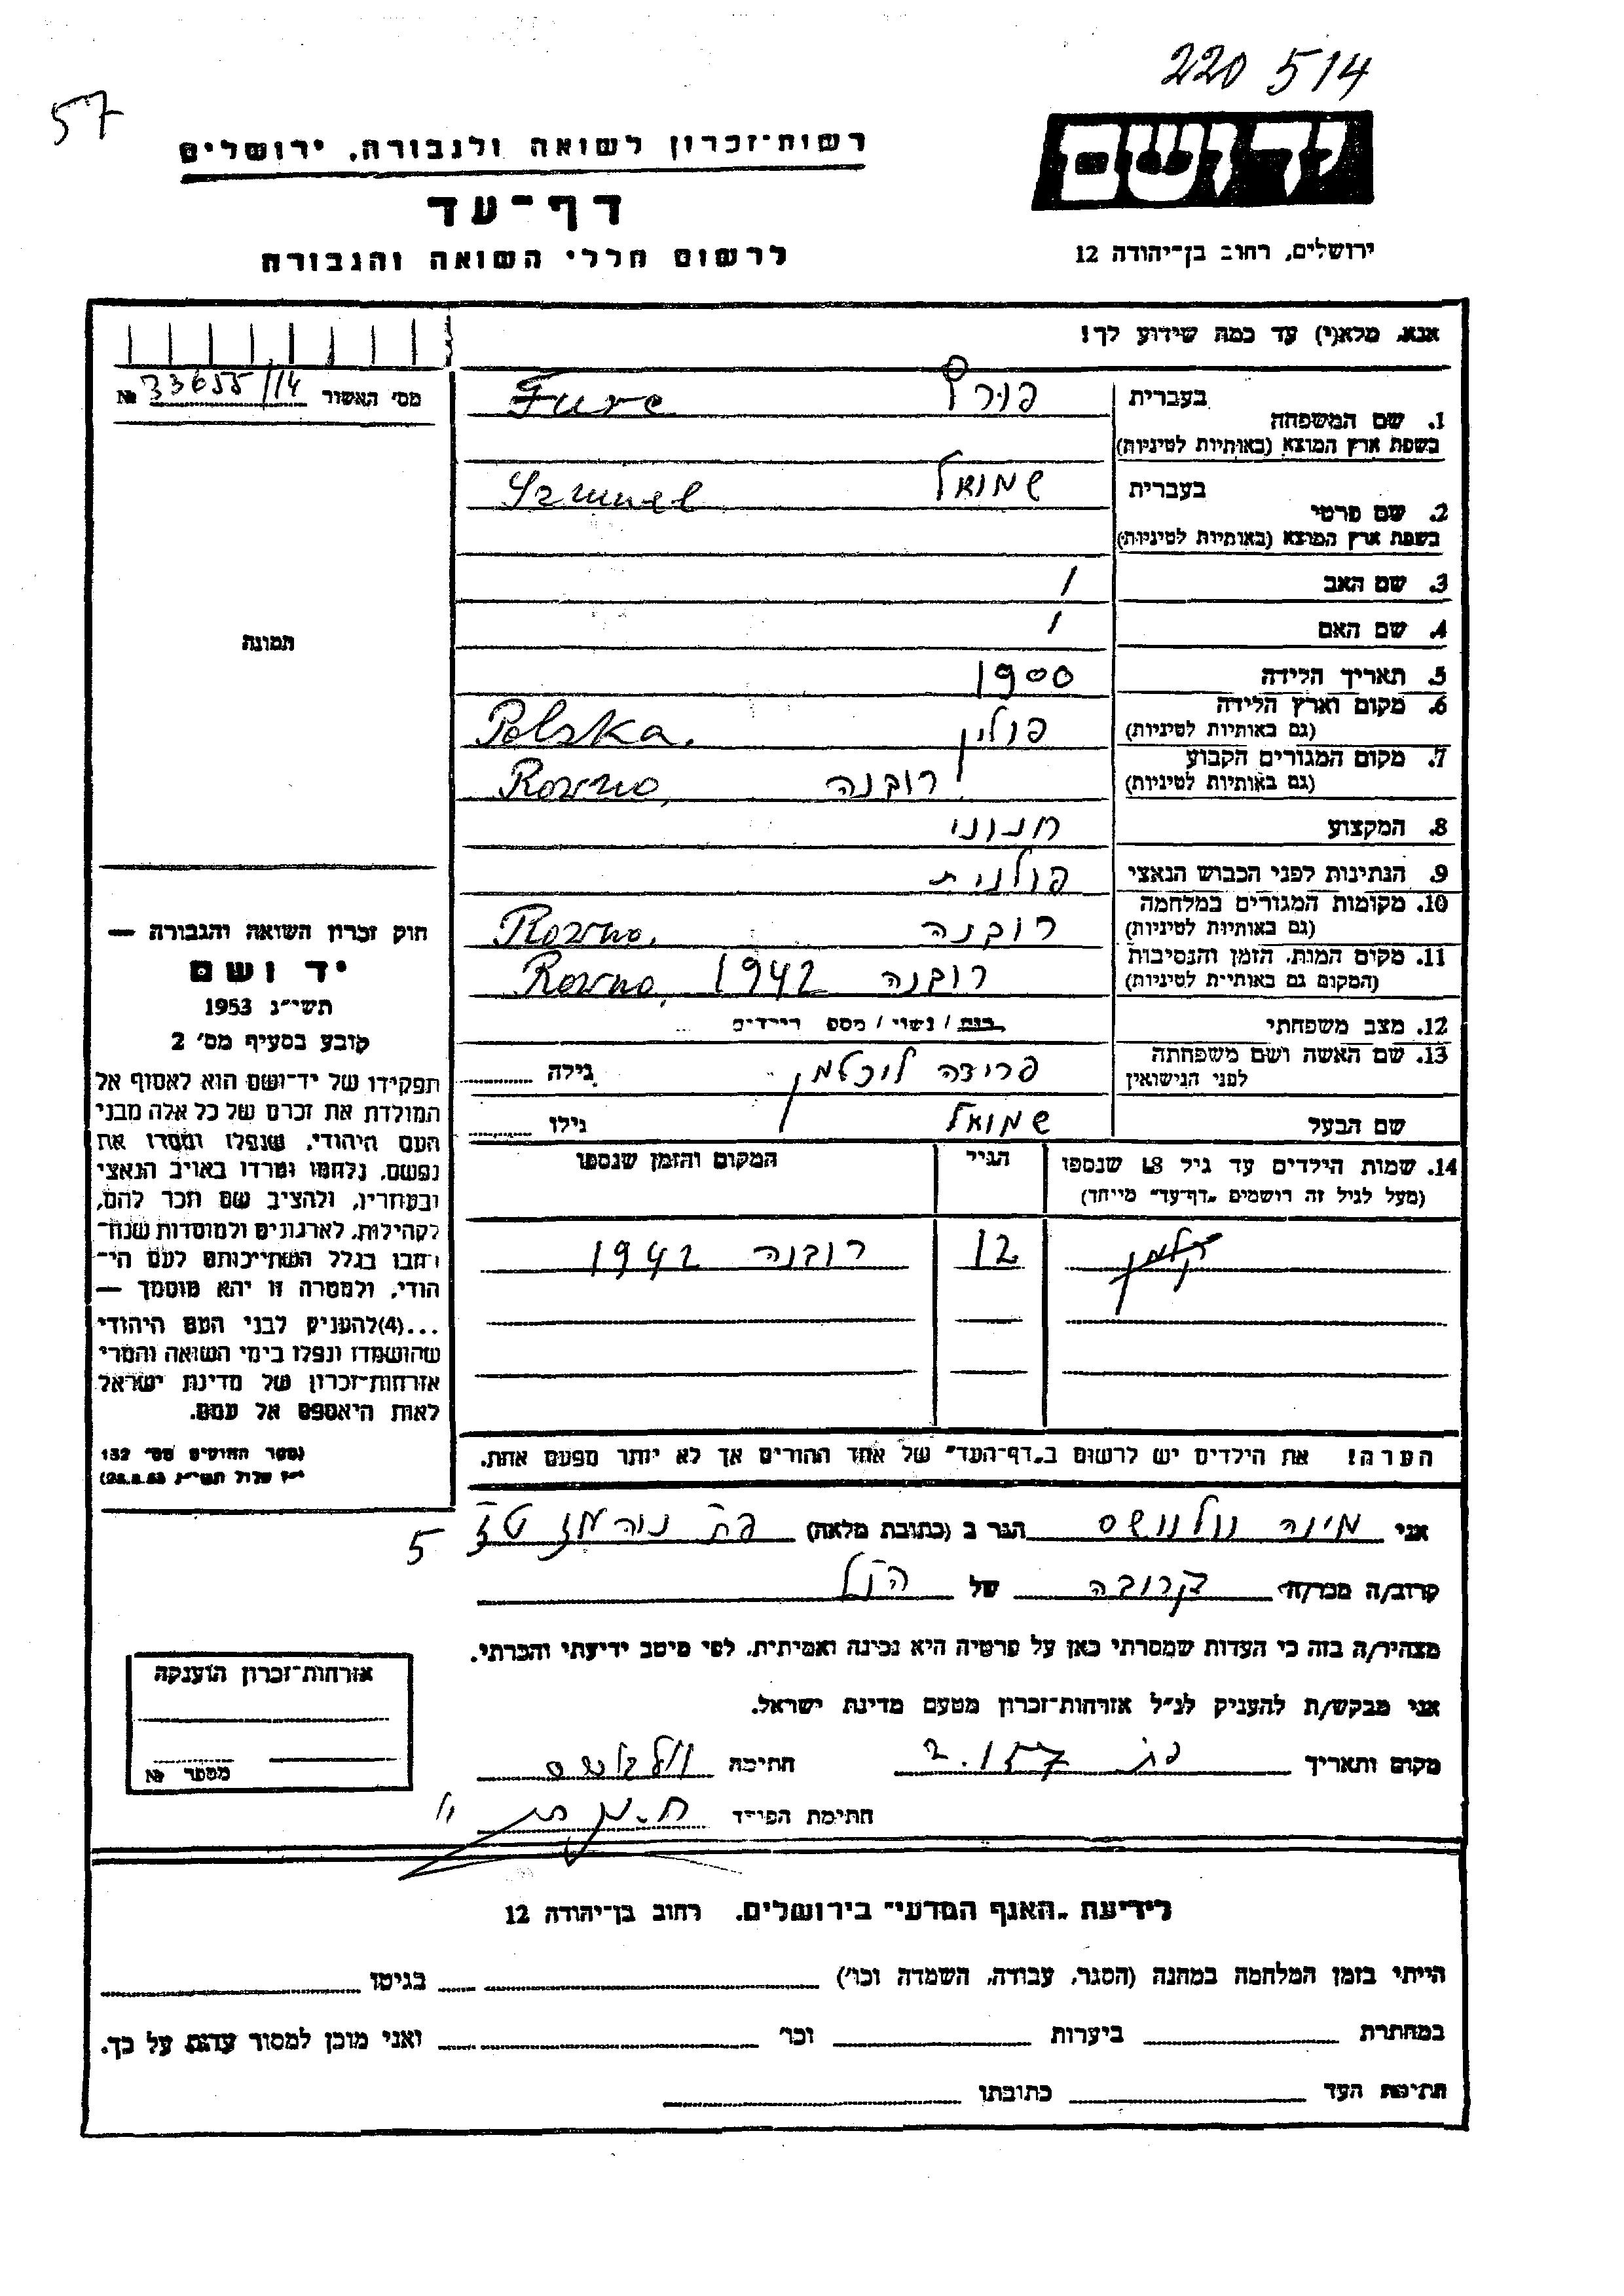 220 514
57
יד ושם
רשות־זכרון לשואה ולגבורה, ירושלים
דף־עד
לרשום חללי השואה והגבורה
ירושלים, רחוב בן־יהודה 12
אנא, מלא(י) עד כמה שידוע לך!
מס' האשור 33655/14 №
תמונה
1. שם המשפחה
בעברית
Furc
בשפת ארץ המוצא (באותיות לטיניות)
2. שם פרטי
בעברית שמואל
Szmuel
בשפת ארץ המוצא (באותיות לטיניות)
3. שם האב /
4. שם האם /
5. תאריך הלידה 1900
6. מקום וארץ הלידה
(גם באותיות לטיניות)
פולין Polska.
7. מקום המגורים הקבוע
(גם באותיות לטיניות)
רובנה Rowno,
8. המקצוע חנוני
9. הנתינות לפני הכבוש הנאצי פולנית
10. מקומות המגורים במלחמה
(גם באותיות לטיניות)
רובנה Rowno,
11. מקום המות, הזמן והנסיבות
(המקום גם באותיות לטיניות)
רובנה 1942 Rowno,
12. מצב משפחתי
/ נשוי / מספ ילדים
13. שם האשה ושם משפחתה
לפני הנישואין
פרידה גילה
שם הבעל שמואל גילו
14. שמות הילדים עד גיל 18 שנספו
(מעל לגיל זה רושמים „דף־עד" מייחד)
הגיל
המקום והזמן שנספו
קלמן 12 רובנה 1942
הערה! את הילדים יש לרשום ב„דף־העד" של אחד ההורים אך לא יותר מפעם אחת.
חוק זכרון השואה והגבורה —
יד ושם
תשי"ג 1953
קובע בסעיף מס' 2
תפקידו של יד־ושם הוא לאסוף אל
המולדת את זכרם של כל אלה מבני
העם היהודי, שנפלו ומסרו את
נפשם, נלחמו ומרדו באויב הנאצי
ובעוזריו, ולהציב שם וזכר להם,
לקהילות, לארגונים ולמוסדות שנח־
רבו בגלל השתייכותם לעם הי־
הודי, ולמטרה זו יהא מוסמך —
...(4)להעניק לבני העם היהודי
שהושמדו ונפלו בימי השואה והמרי
אזרחות־זכרון של מדינת ישראל
לאות היאספם אל עמם.
(ספר החוקים מס' 132
י"ז אלול תשי"ג 28.8.53)
אני מינה הגר ב (כתובת מלאה)
5
קרוב/ה מכר/ה קרובה של הנ"ל
מצהיר/ה בזה כי העדות שמסרתי כאן על פרטיה היא נכונה ואמיתית, לפי מיטב ידיעתי והכרתי.
אני מבקש/ת להעניק לנ"ל אזרחות־זכרון מטעם מדינת ישראל.
מקום ותאריך חתימה
חתימת הפו־ד
אזרחות־זכרון הוענקה
מספר №
לידיעת „האגף המדעי" בירושלים, רחוב בן־יהודה 12
הייתי בזמן המלחמה במחנה (הסגר, עבודה, השמדה וכו') בגיטו
במחתרת ביערות וכו' ואני מוכן למסור עדות על כך.
חתימת העד כתובתו